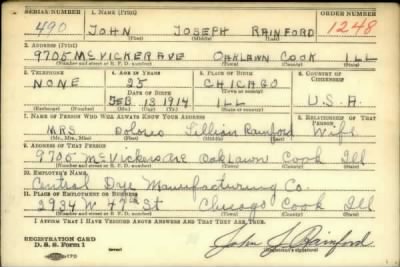 SERIAL NUMBER 1. NAME (Print) ORDER NUMBER
490 JOHN JOSEPH RAINFORD 1248
(First) (Middle) (Last)
2. ADDRESS (Print)
9705 McVICKER AVE OAKLAWN COOK ILL
(Number and street or R. F. D. number) (Town) (County) (State)
3. TELEPHONE 4. AGE IN YEARS 5. PLACE OF BIRTH 6. COUNTRY OF CITIZENSHIP
NONE 25 CHICAGO
DATE OF BIRTH (Town or county)
FEB 13 1914 ILL U.S.A.
(Exchange) (Number) (Mo.) (Day) (Yr.) (State or country)
7. NAME OF PERSON WHO WILL ALWAYS KNOW YOUR ADDRESS 8. RELATIONSHIP OF THAT PERSON
MRS Dolores Lillian Rainford Wife
(Mr., Mrs., Miss) (First) (Middle) (Last)
9. ADDRESS OF THAT PERSON
9705 McVicker ave Oaklawn Cook Ill
(Number and street or R. F. D. number) (Town) (County) (State)
10. EMPLOYER'S NAME
Central Dye Manufacturing Co.
11. PLACE OF EMPLOYMENT OR BUSINESS
2934 W 47th St Chicago Cook Ill
(Number and street or R. F. D. number) (Town) (County) (State)
I AFFIRM THAT I HAVE VERIFIED ABOVE ANSWERS AND THAT THEY ARE TRUE.
REGISTRATION CARD
D. S. S. Form 1 John J Rainford
(Registrant's signature)